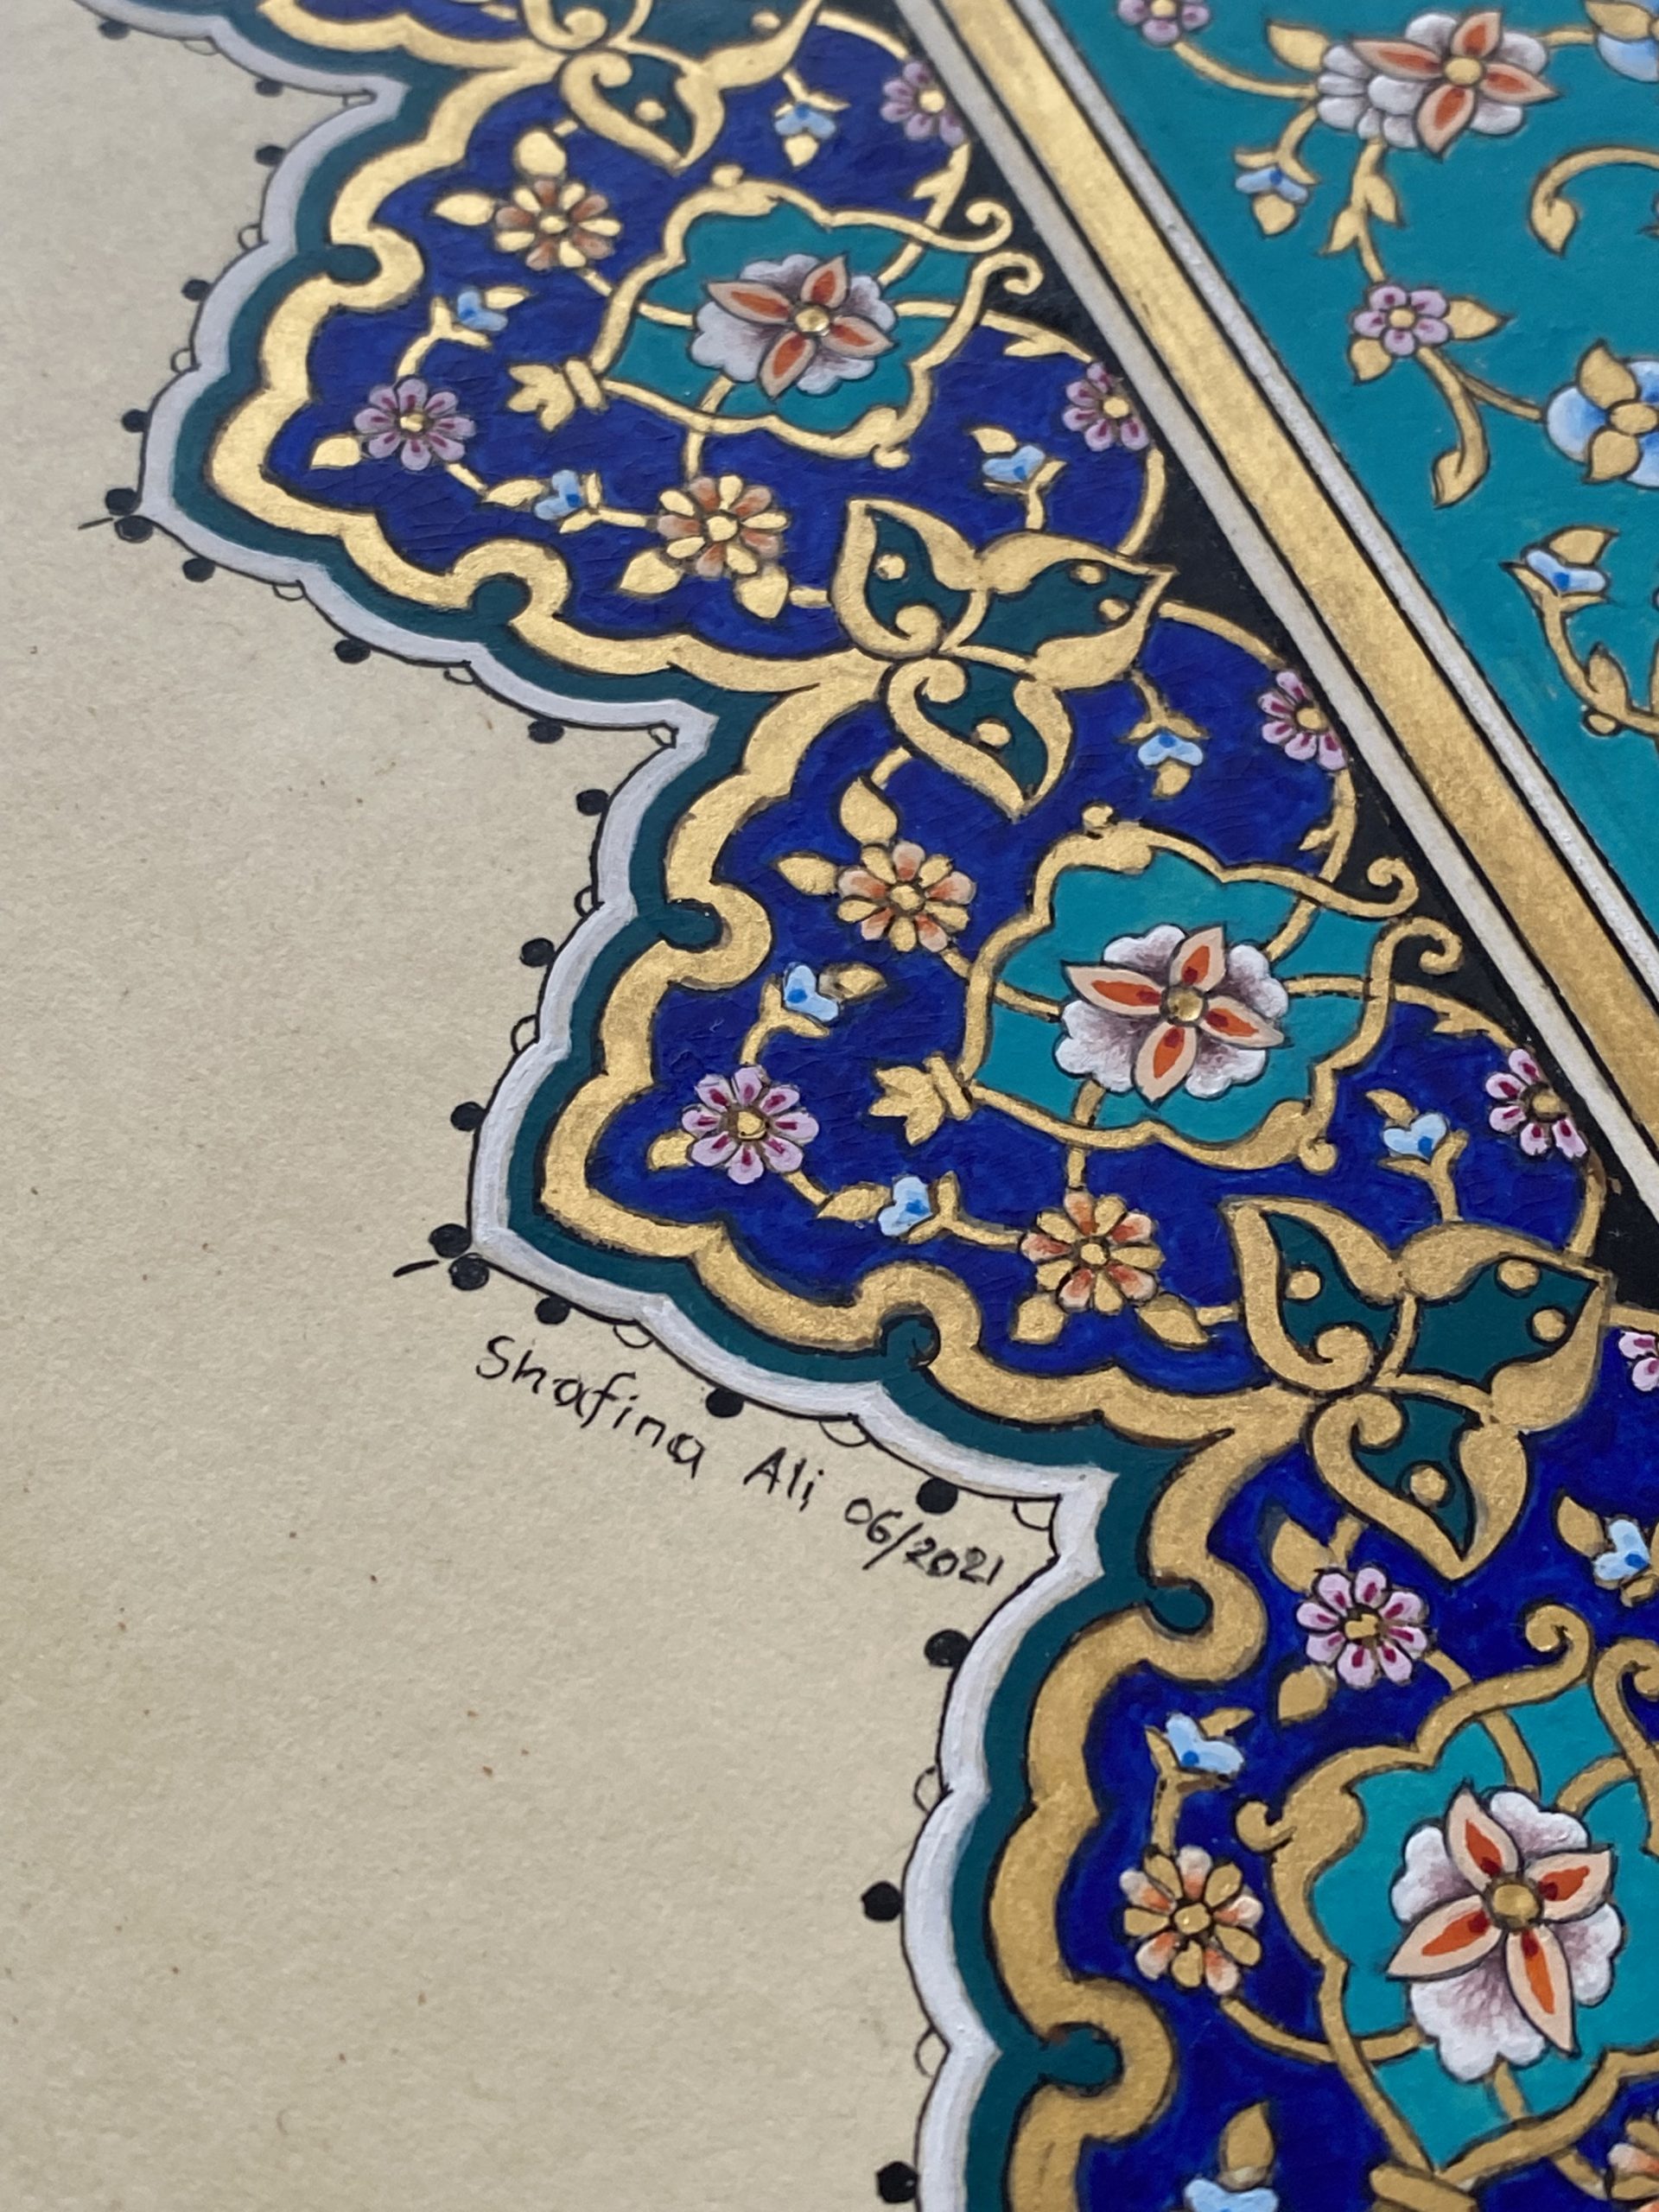 Shafina Ali 06/2021